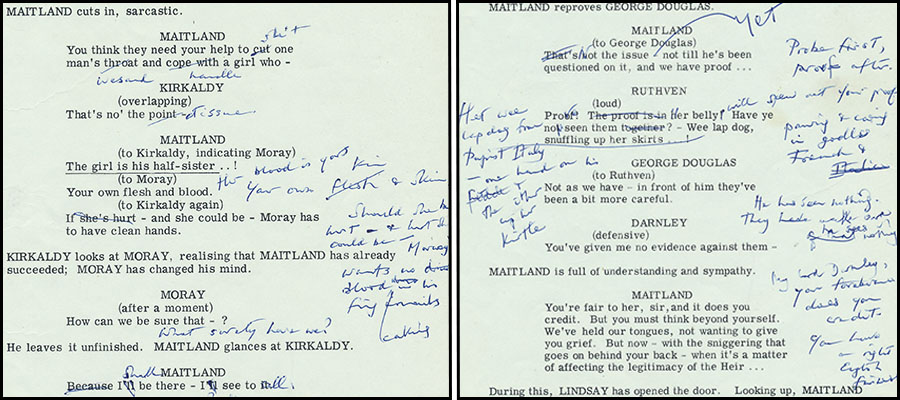 MAITLAND cuts in, sarcastic.
MAITLAND
slit
You think they need your help to cut one
man's throat and cope with a girl who -
wesand handle
KIRKALDY
(overlapping)
That's no' the point - at issue
MAITLAND
(to Kirkaldy, indicating Moray)
The girl is his half-sister ..!
(to Moray)
Her blood is yours
Your own flesh and blood.
Your own flesh & skin
Kin
(to Kirkaldy again)
If she's hurt - and she could be - Moray has
to have clean hands.
Should she be
hurt - & hurt she
could be - Moray
wants no
blood on his
fingernails
caking
KIRKALDY looks at MORAY, realising that MAITLAND has already
succeeded; MORAY has changed his mind.
MORAY
(after a moment)
How can we be sure that - ?
What surety have we?
He leaves it unfinished. MAITLAND glances at KIRKALDY.
MAITLAND
shall
Because I'll be there - I'll see to it all.
MAITLAND reproves GEORGE DOUGLAS.
yet
MAITLAND
(to George Douglas)
That's not the issue - not till he's been
questioned on it, and we have proof ...
Probe first,
proof after.
RUTHVEN
(loud)
Proof! The proof is in Her belly! Have ye
not seen them together? - Wee lap dog,
snuffling up her skirts ...!
will spew out your proof
puking & crying
in godless
French &
Italian
Her wee
lapdog from
Papist Italy
- one hand on his
the other
up her
Kirtle
GEORGE DOUGLAS
(to Ruthven)
Not as we have - in front of him they've
been a bit more careful.
He has seen nothing.
They have
nothing
DARNLEY
(defensive)
You've given me no evidence against them -
MAITLAND is full of understanding and sympathy.
My Lord Darnley,
your forbearance
does you
credit.
You have
a right
MAITLAND
You're fair to her, sir, and it does you
credit. But you must think beyond yourself.
We've held our tongues, not wanting to give
you grief. But now - with the sniggering that
goes on behind your back - when it's a matter
of affecting the legitimacy of the Heir ...
During this, LINDSAY has opened the door. Looking up, MAITLAND